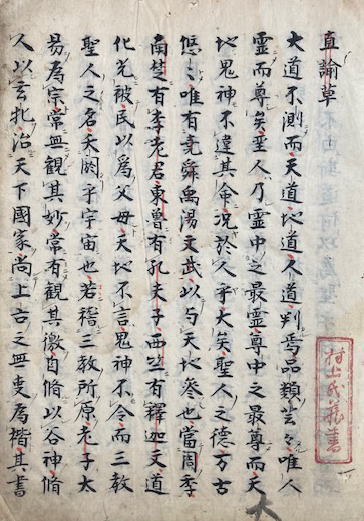 直諭草
大道不測而天道地道人道判焉品類芸々唯人
霊而尊矣聖人乃霊中之最霊尊中之最尊而天
地鬼神不違其命況於人乎大矣聖人之德万古
悠々唯有堯舜禹湯文武以与天地參也當周季
南竺有李老君東魯有孔夫子西竺有釋迦文道
化光被民以為父母天地不言鬼神不令而三教
聖人之名大乎宇宙也若稽三教所原老子太
易為宗常無観其妙常有観其徼自脩以谷神脩
人以玄牝治天下國家尚上古之無事為楷其書
村上氏蔵書
大